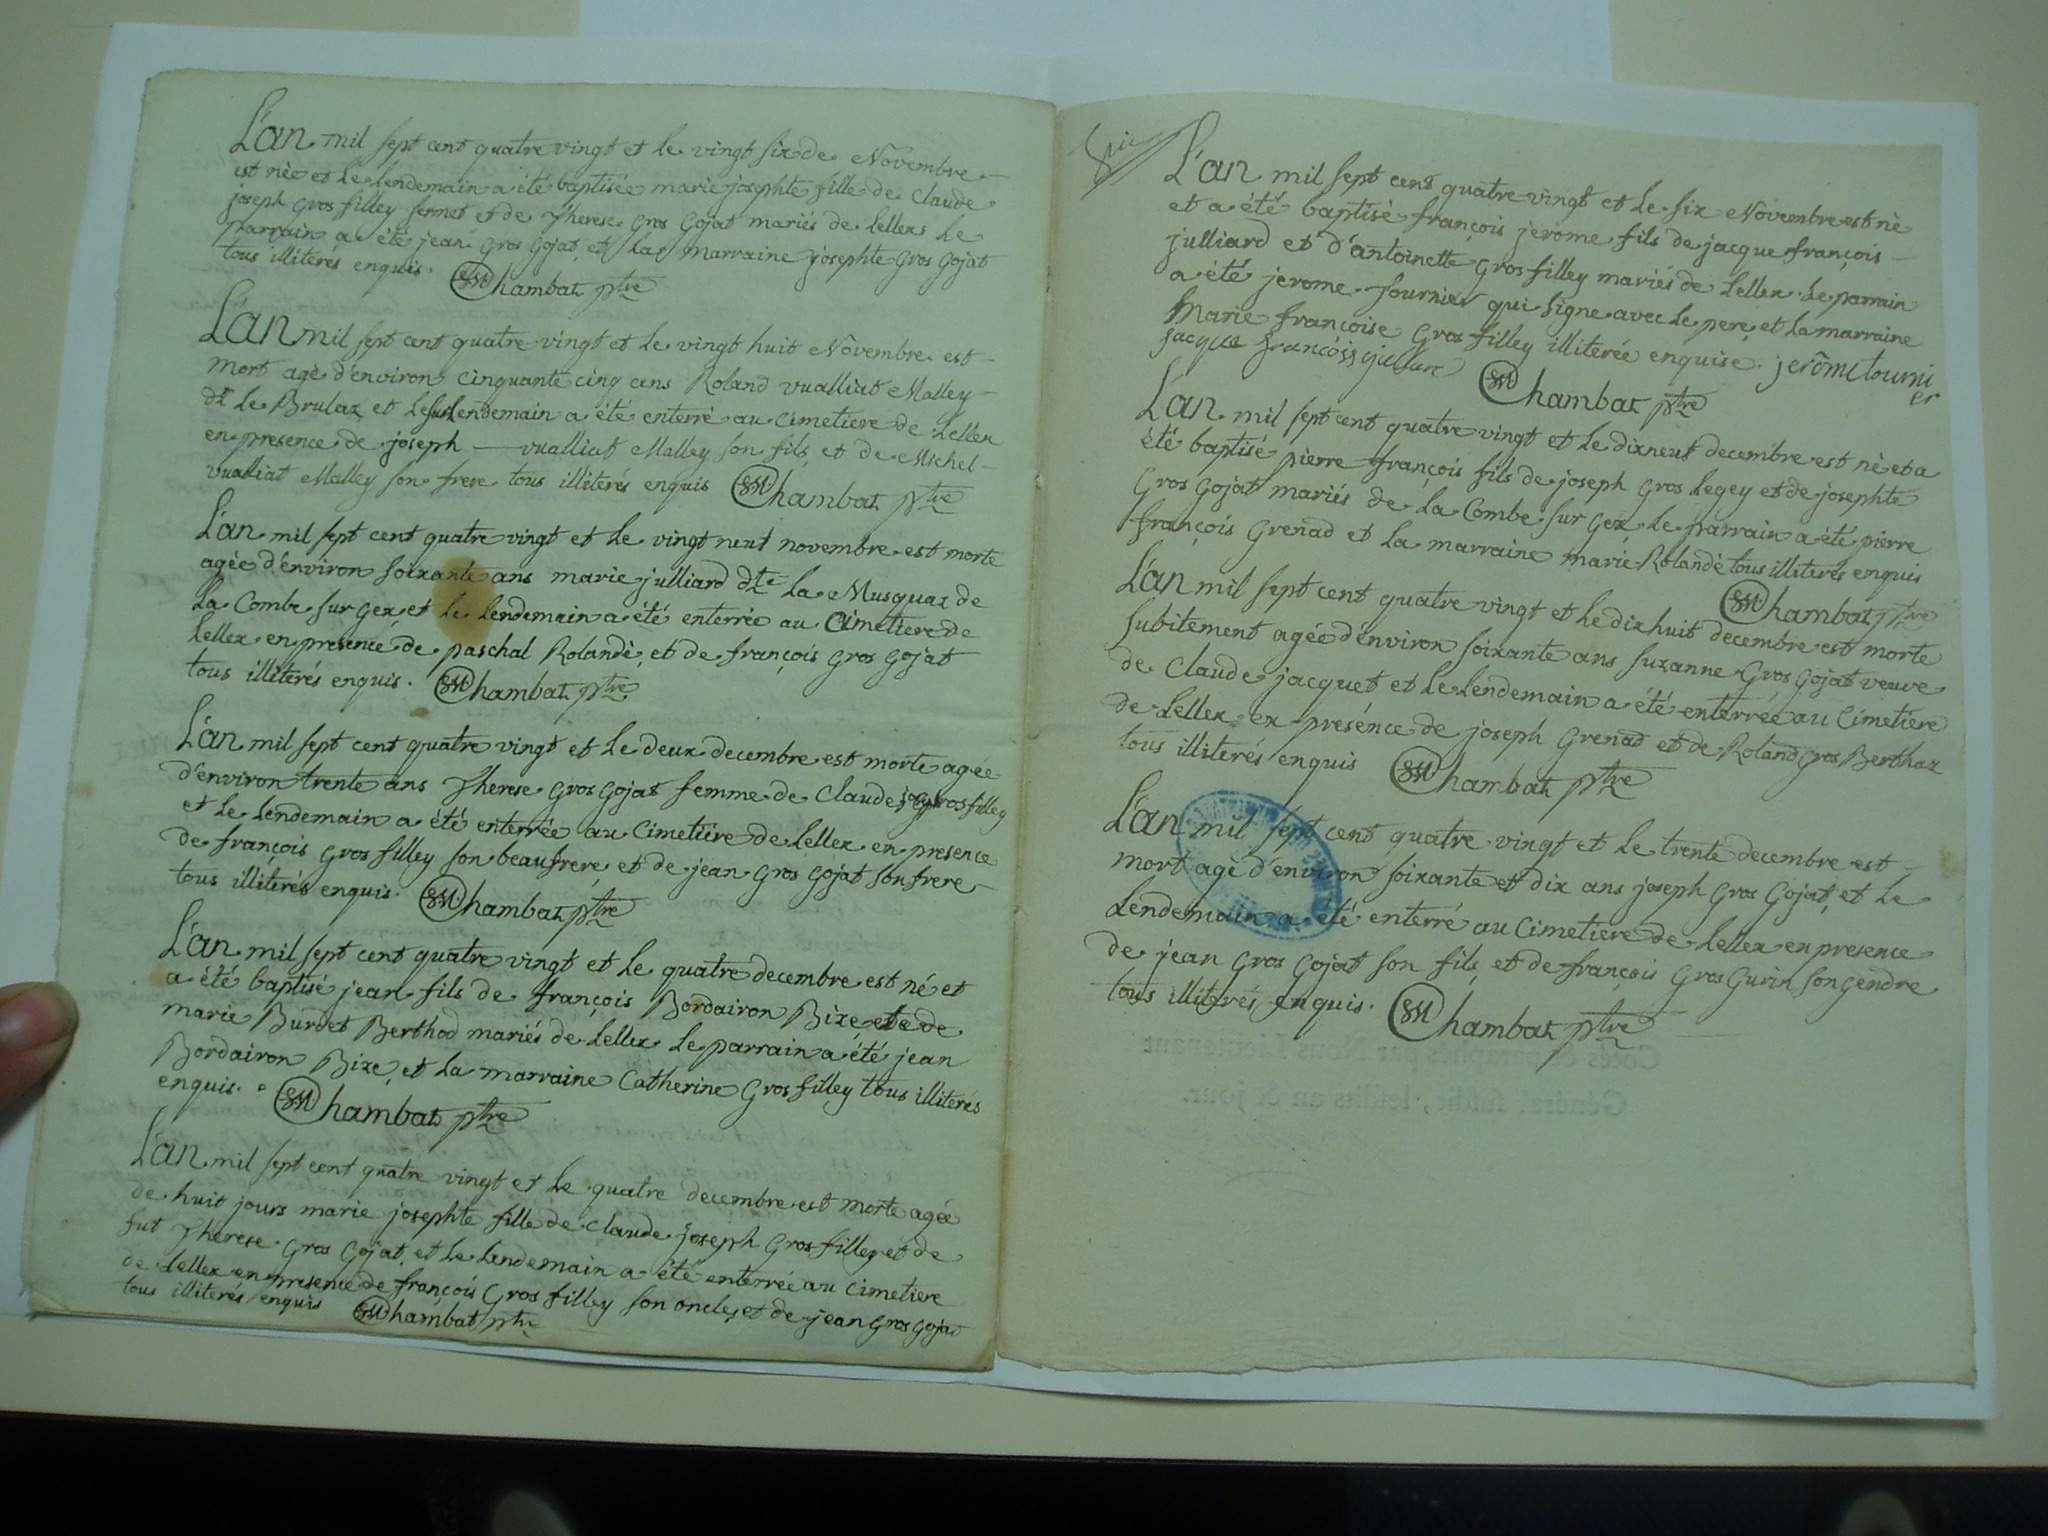 L'an mil sept cent quatre vingt et le vingt six de Novembre
est née et le lendemain a été baptisée marie josephte fille de Claude
joseph Gros filley fermet et de Therese Gros Gojat mariés de Lellex Le
parrain a été jean Gros Gojat et la marraine josephte Gros Gojat
tous illiterés enquis. Chambat ptre
L'an mil sept cent quatre vingt et le vingt huit Novembre est
mort agé d'environ cinquante cinq ans Roland vualliat Malley
dt Le Brulaz et le lendemain a été enterré au Cimetiere de Lellex
en presence de joseph vualliat Malley son fils et de Michel
vualliat Malley son frere tous illiterés enquis Chambat ptre
L'an mil sept cent quatre vingt et le vingt neuf novembre est morte
agée d'environ soixante ans marie julliard dte la Musquaz de
La Combe sur Gex et le lendemain a été enterrée au Cimetiere de
Lellex en presence de paschal Rolandè et de françois Gros Gojat
tous illiterés enquis. Chambat ptre
L'an mil sept cent quatre vingt et le deux decembre est morte agée
d'environ trente ans Therese Gros Gojat femme de Claude jos Gros filley
et le lendemain a été enterrée au Cimetiere de Lellex en presence
de françois Gros filley son beaufrere et de jean Gros Gojat son frere
tous illiterés enquis. Chambat ptre
L'an mil sept cent quatre vingt et le quatre decembre est né et
a été baptisé jean fils de françois Bordairon Bixe et de
marie Burdet Berthod mariés de Lellex Le parrain a été jean
Bordairon Bixe et la marraine Catherine Gros filley tous illiterés
enquis. Chambat ptre
L'an mil sept cent quatre vingt et le quatre decembre est morte agée
de huit jours marie josephte fille de Claude joseph Gros filley et de
fut Therese Gros Gojat et le lendemain a été enterrée au Cimetiere
de Lellex en presence de françois Gros filley son oncle, et de jean Gros Gojat
tous illiterés enquis Chambat ptre
L'an mil sept cent quatre vingt et le six Novembre est né
et a été baptisé françois jerome fils de jacque françois
julliard et d'antoinette Gros filley mariés de Lellex Le parrain
a été jerome fournier qui signe avec le pere, et la marraine
Marie françoise Gros filley illiterée enquise. jerôme tourni
er
jacque françois juliard Chambat ptre
L'an mil sept cent quatre vingt et le dixneuf decembre est né et a
été baptisé pierre françois fils de joseph Gros Legey et de josephte
Gros Gojat mariés de La Combe sur Gex Le parrain a été pierre
françois Grenad et la marraine marie Rolandè tous illiterés enquis
Chambat ptre
L'an mil sept cent quatre vingt et le dix huit decembre est morte
subitement agée d'environ soixante ans suzanne Gros Gojat veuve
de Claude jacquet et le lendemain a été enterrée au Cimetiere
de Lellex en presénce de joseph Grenad et de Roland Gros Berthaz
tous illiterés enquis Chambat ptre
L'an mil sept cent quatre vingt et le trente decembre est
mort agé d'environ soixante et dix ans joseph Gros Gojat, et le
lendemain a été enterré au Cimetiere de Lellex en presence
de jean Gros Gojat son fils et de françois Gros Gurin son gendre
tous illiterés enquis. Chambat ptre